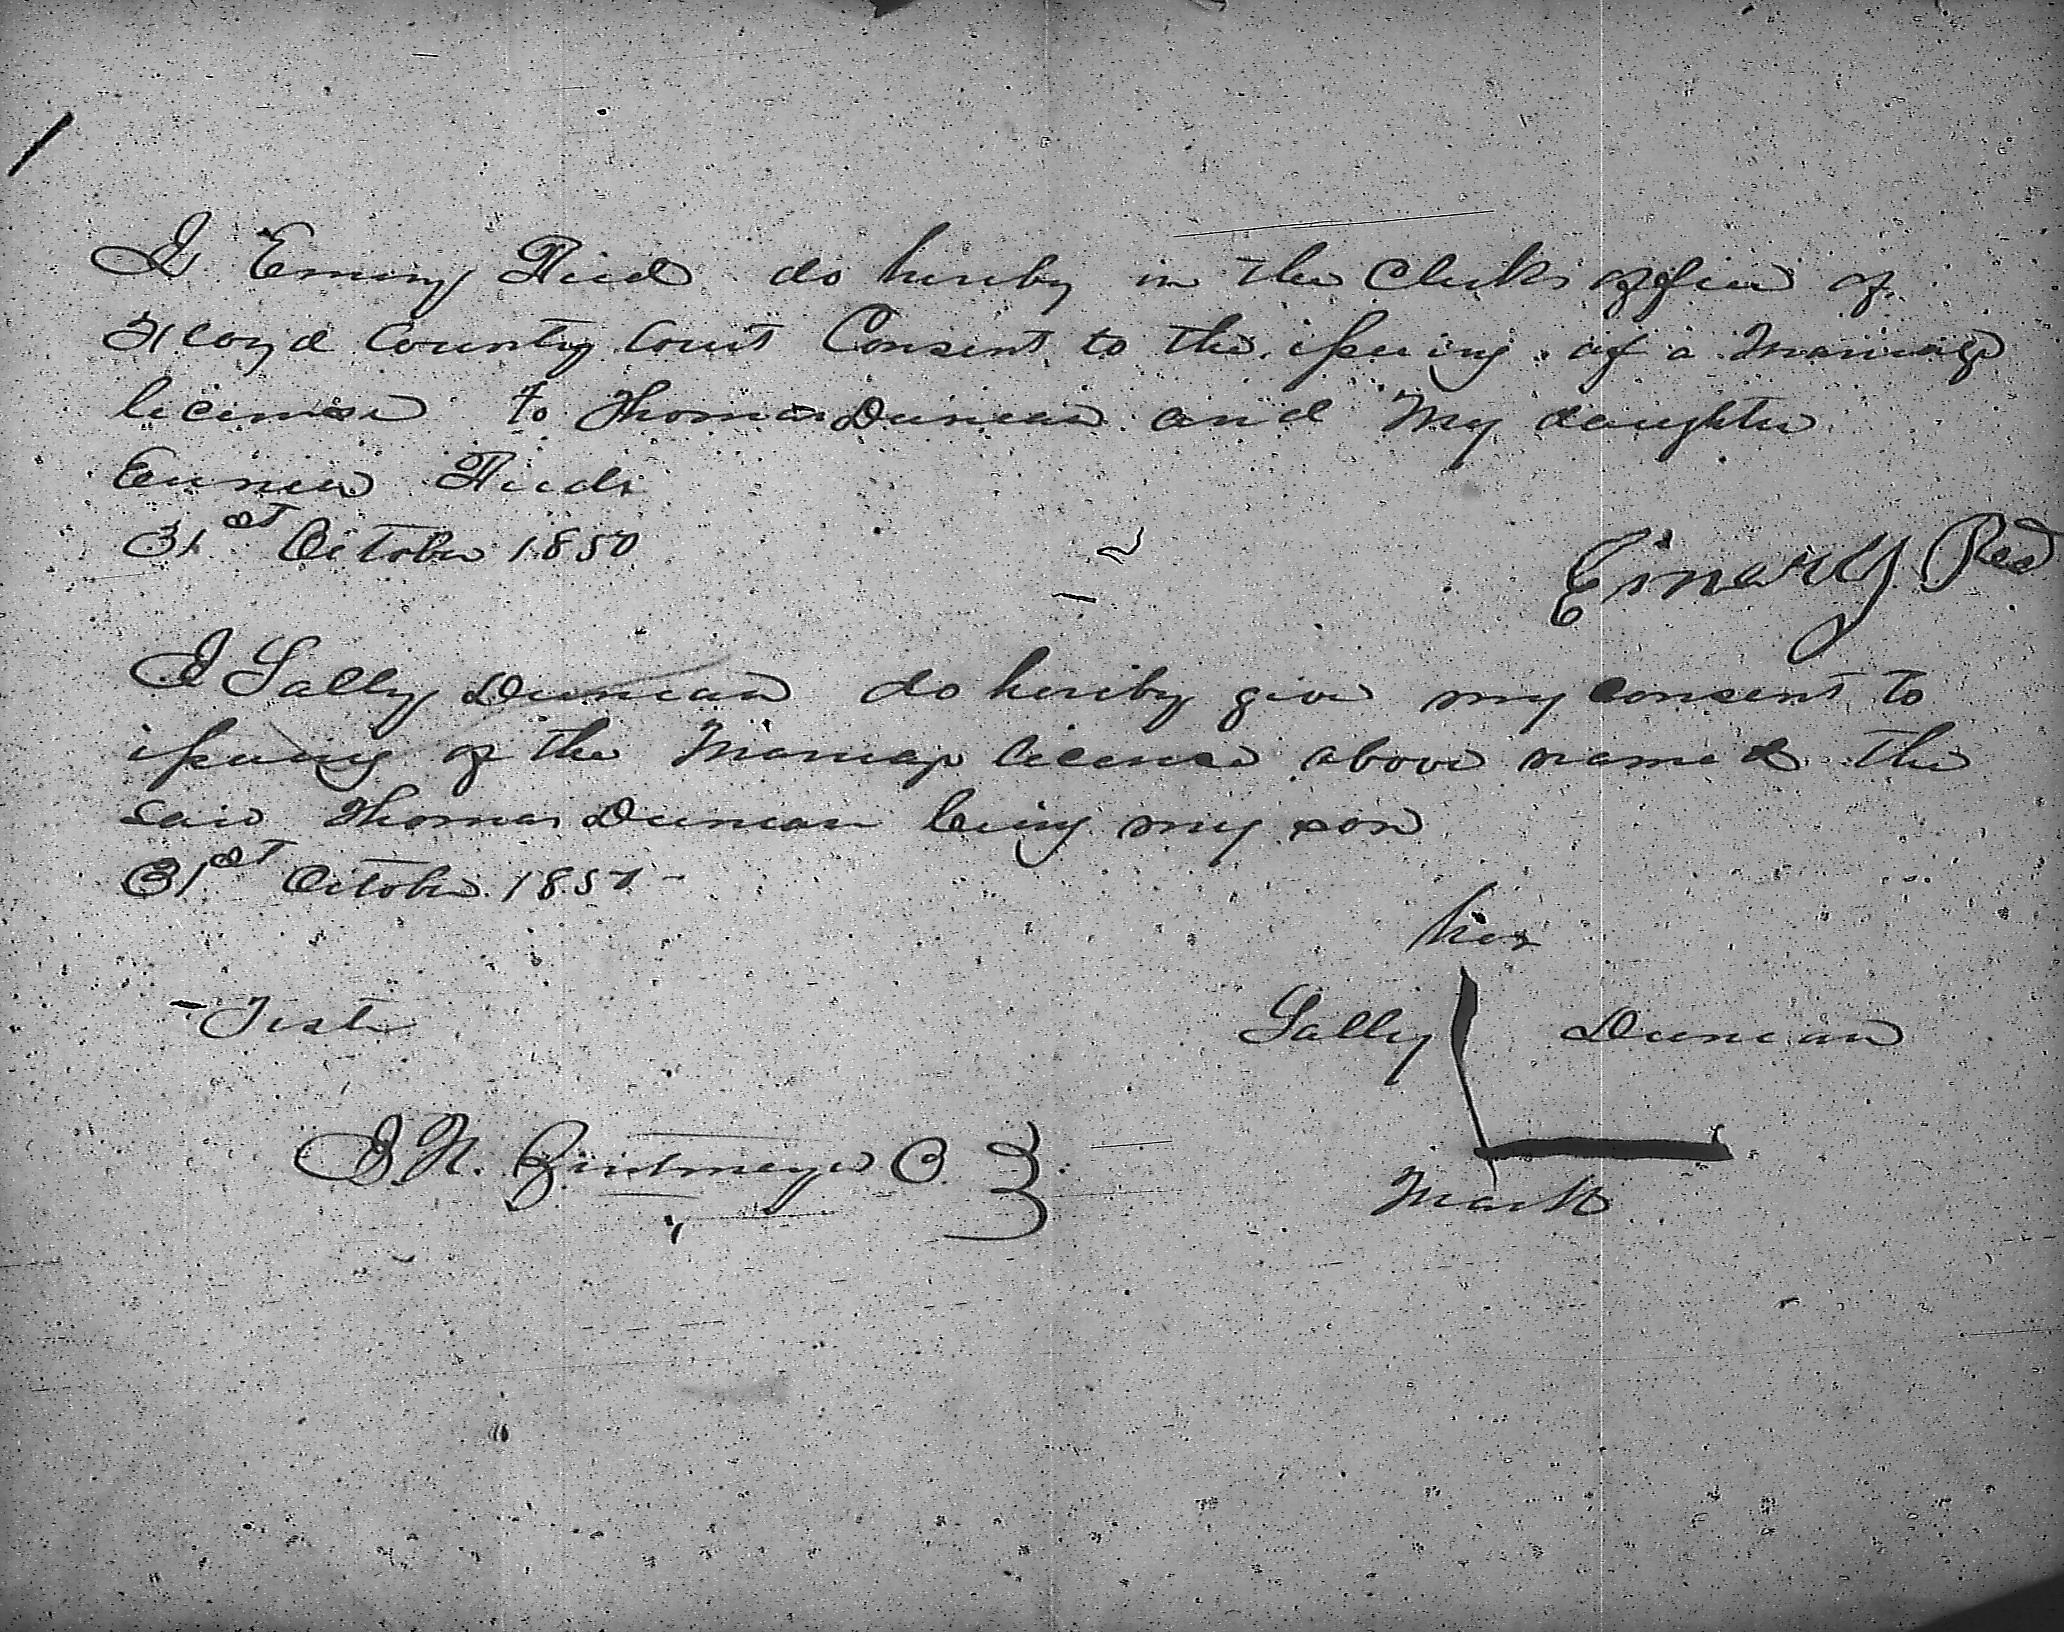 I Emory Reed do hereby in the Clerks office of
Floyd County Court Consent to the issuing of a Marriage
license to Thomas Duncan and My daughter
Eunice Reed
31st October 1850
Emory Reed
I Sally Duncan do hereby give my consent to
issuing of the Marriage license above named the
said Thomas Duncan being my son
31st October 1850
her
Teste
Sally Duncan
mark